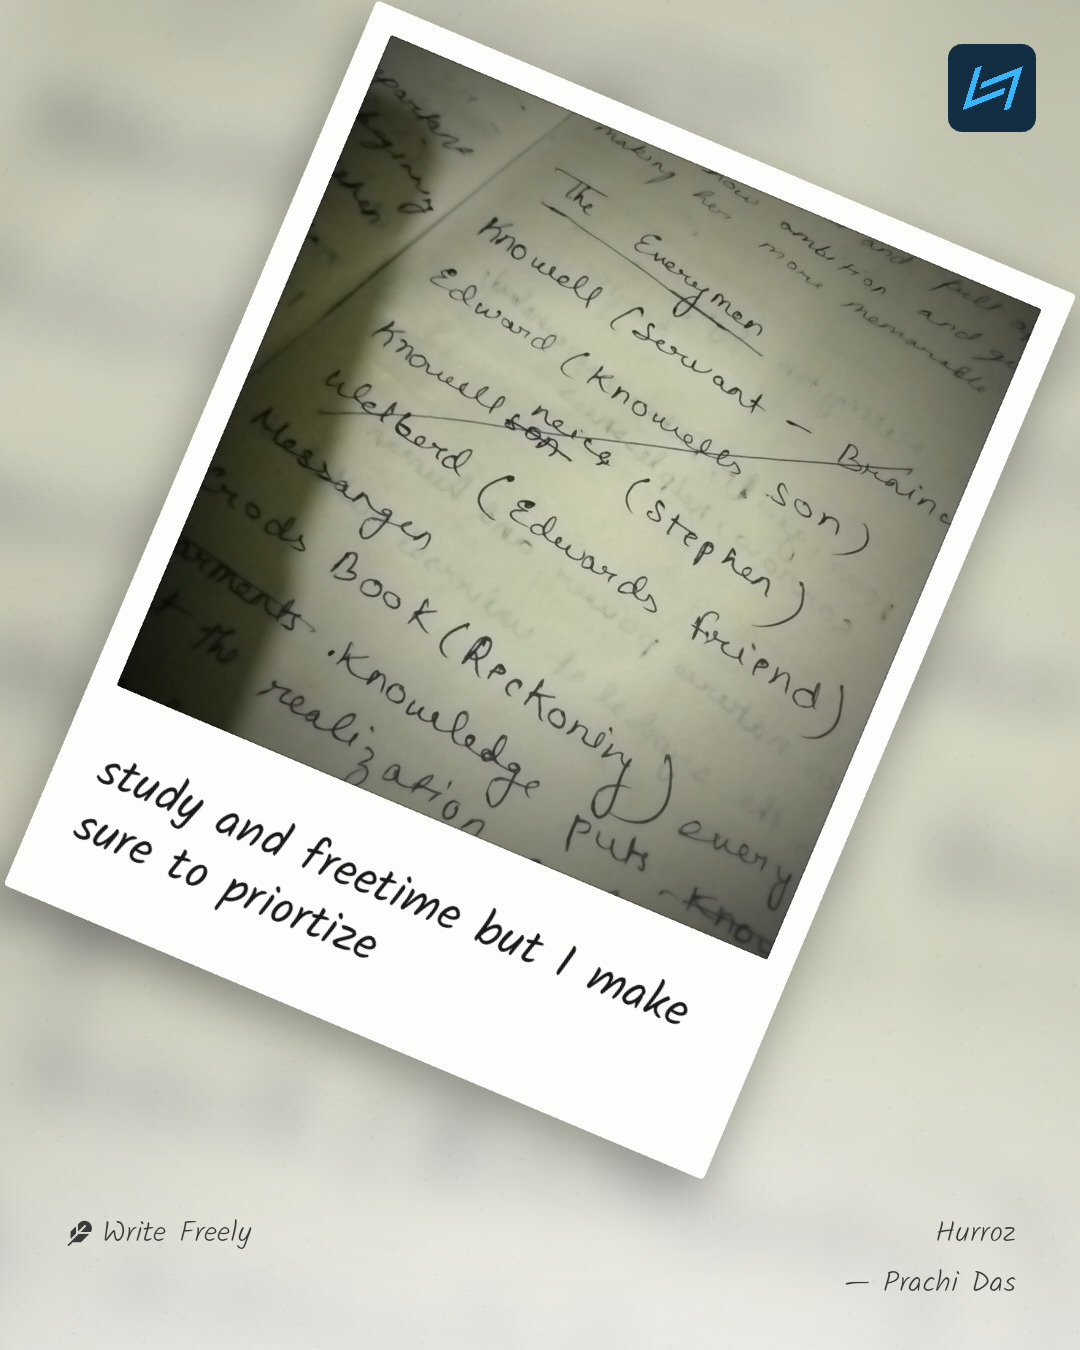 making her now ambition and full of
more memorable and ge
The Everyman
Knowell (Servant - Brain
Edward (Knowells son)
Knowell neice (Stephen)
Welberd (Edwards friend)
Messanger
Crods Book (Reckoning)
arments. Knowledge puts every
the realization Know
study and freetime but I make
sure to priortize
Write Freely
Hurroz
— Prachi Das